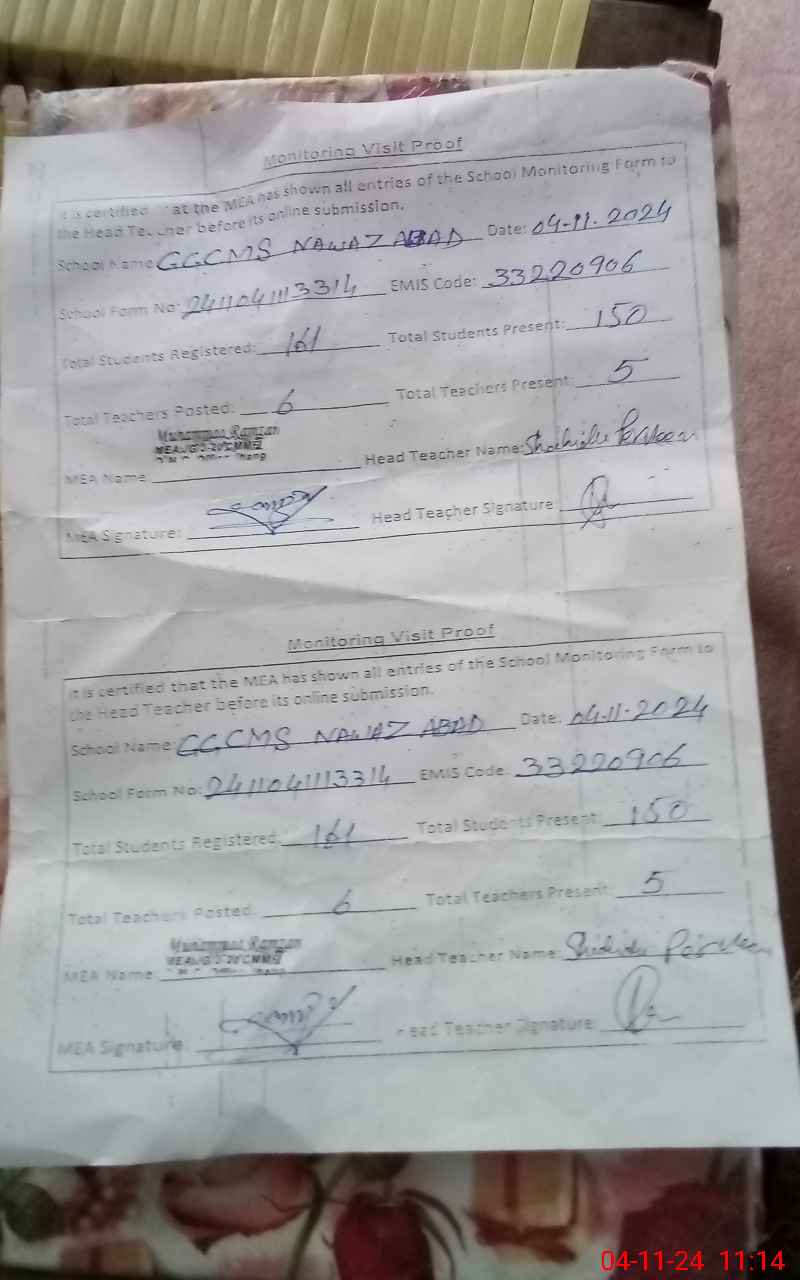 Monitoring Visit Proof
It is certified that the MEA has shown all entries of the School Monitoring Form to
the Head Teacher before its online submission.
School Name GGCMS NAWAZ ABAD Date: 04-11-2024
School Form No: 2411041113314 EMIS Code: 33220906
Total Students Registered: 161 Total Students Present: 150
Total Teachers Posted: 6 Total Teachers Present: 5
Muhammad Ramzan
MEA Name: Head Teacher Name: Perveen
MEA Signature: Head Teacher Signature
Monitoring Visit Proof
It is certified that the MEA has shown all entries of the School Monitoring Form to
the Head Teacher before its online submission.
School Name GGCMS NAWAZ ABAD Date: 04-11-2024
School Form No: 2411041113314 EMIS Code: 33220906
Total Students Registered: 161 Total Students Present: 150
Total Teachers Posted: 6 Total Teachers Present: 5
Muhammad Ramzan
MEA Name: Head Teacher Name: Perveen
MEA Signature: Head Teacher Signature:
04-11-24 11:14